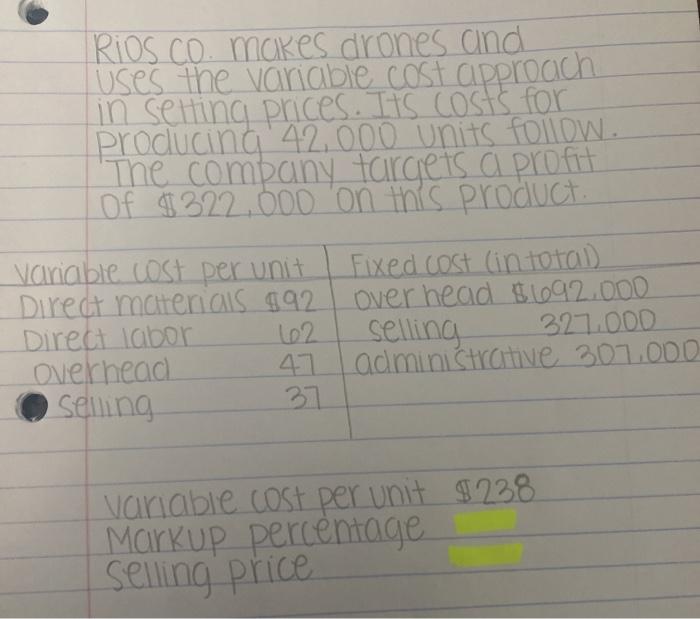 Rios co. makes drones and
uses the variable cost approach
in setting prices. Its costs for
producing 42,000 units follow.
The company targets a profit
of $322,000 on this product.
variable cost per unit Fixed cost (in total)
Direct materials $92 overhead $692,000
Direct labor 62 selling 327,000
overhead 47 administrative 307,000
selling 37
variable cost per unit $238
Markup percentage
selling price